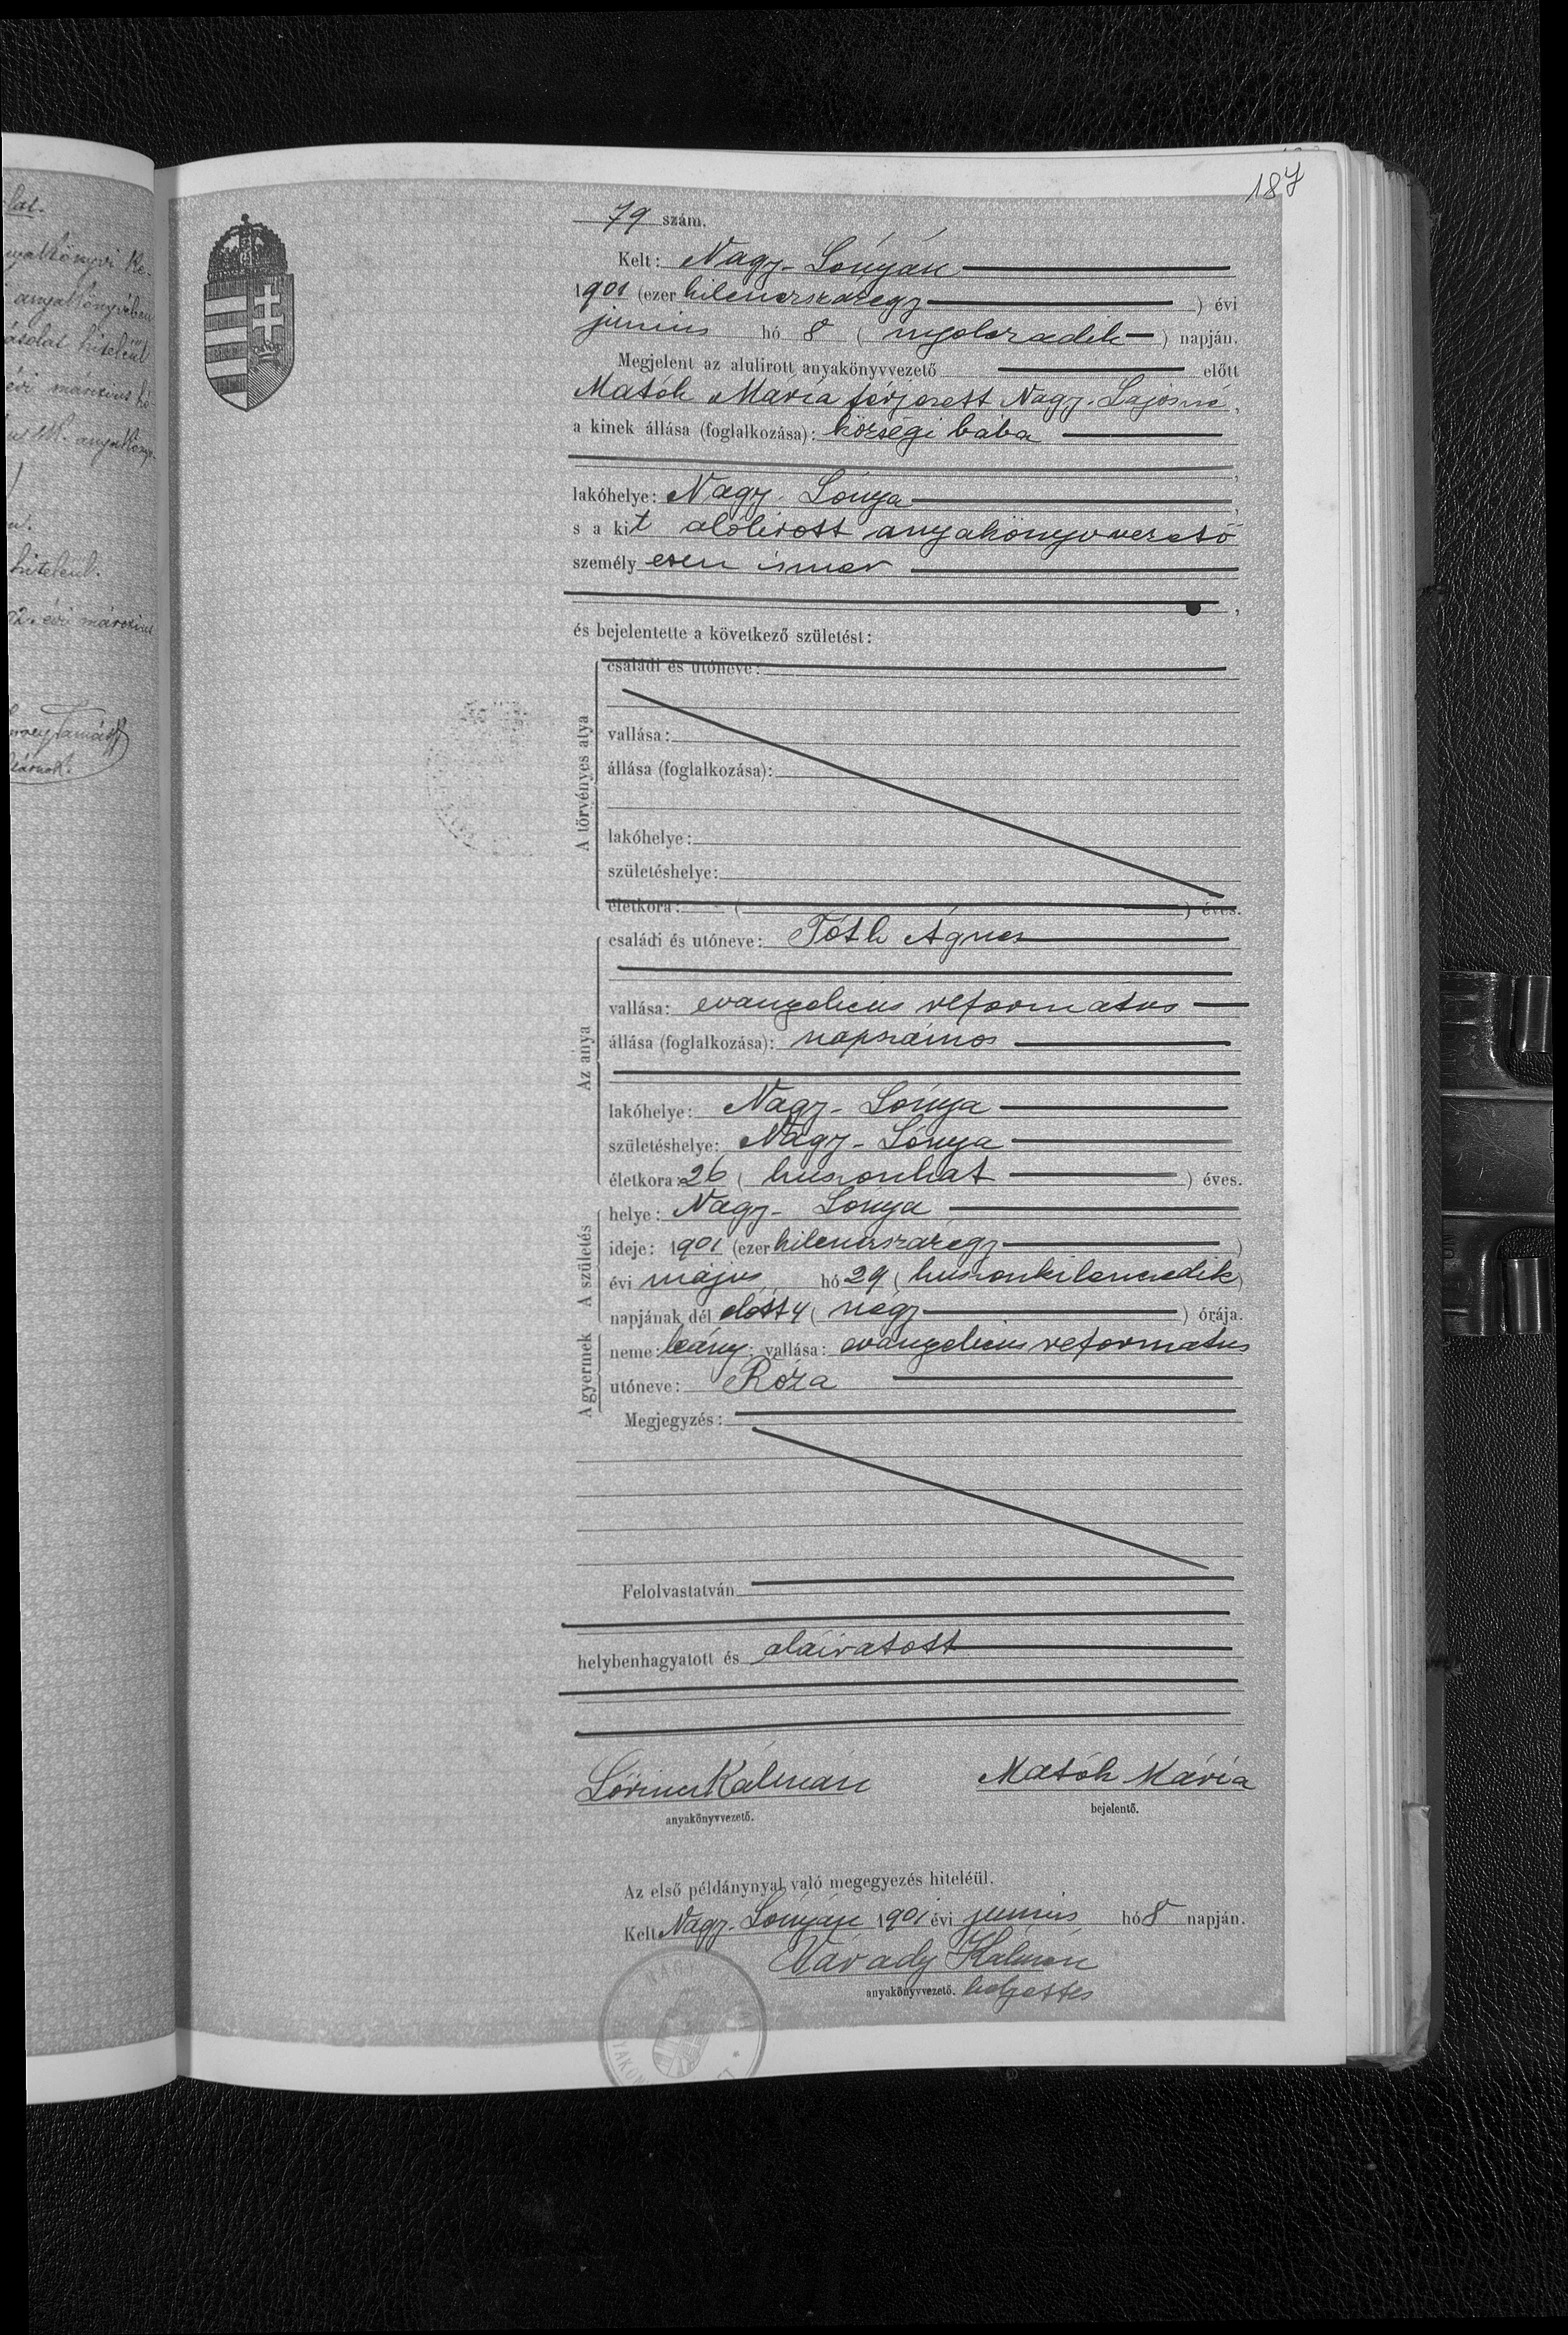 187
79 szám.
Kelt: Nagy-Lónyán
1901 (ezer kilenczszázegy) évi
junius hó 8 (nyolczadik) napján.
Megjelent az alulirott anyakönyvvezető előtt
Matóh Mária férjezett Nagy Lajosné,
a kinek állása (foglalkozása): községi bába
lakóhelye: Nagy-Lónya,
s a kit alólirott anyakönyvvezető
személyesen ismer
és bejelentette a következő születést:
A törvényes atya
családi és utóneve:
vallása:
állása (foglalkozása):
lakóhelye:
születéshelye:
életkora: ( ) éves.
Az anya
családi és utóneve: Tóth Ágnes
vallása: evangelicus reformatus
állása (foglalkozása): napszámos
lakóhelye: Nagy-Lónya
születéshelye: Nagy-Lónya
életkora: 26 (huszonhat) éves.
A születés
helye: Nagy-Lónya
ideje: 1901 (ezer kilenczszázegy)
évi május hó 29 (huszonkilenczedik)
napjának dél előtt 4 (négy) órája.
A gyermek
neme: leány; vallása: evangelicus reformatus
utóneve: Róza
Megjegyzés:
Felolvastatván
helybenhagyatott és aláiratott
Lőrincz Kálmán Matóh Mária
anyakönyvvezető. bejelentő.
Az első példánynyal való megegyezés hiteléül.
Kelt Nagy-Lónyán 1901 évi junius hó 8 napján.
Várady Kálmán
anyakönyvvezető. helyettes